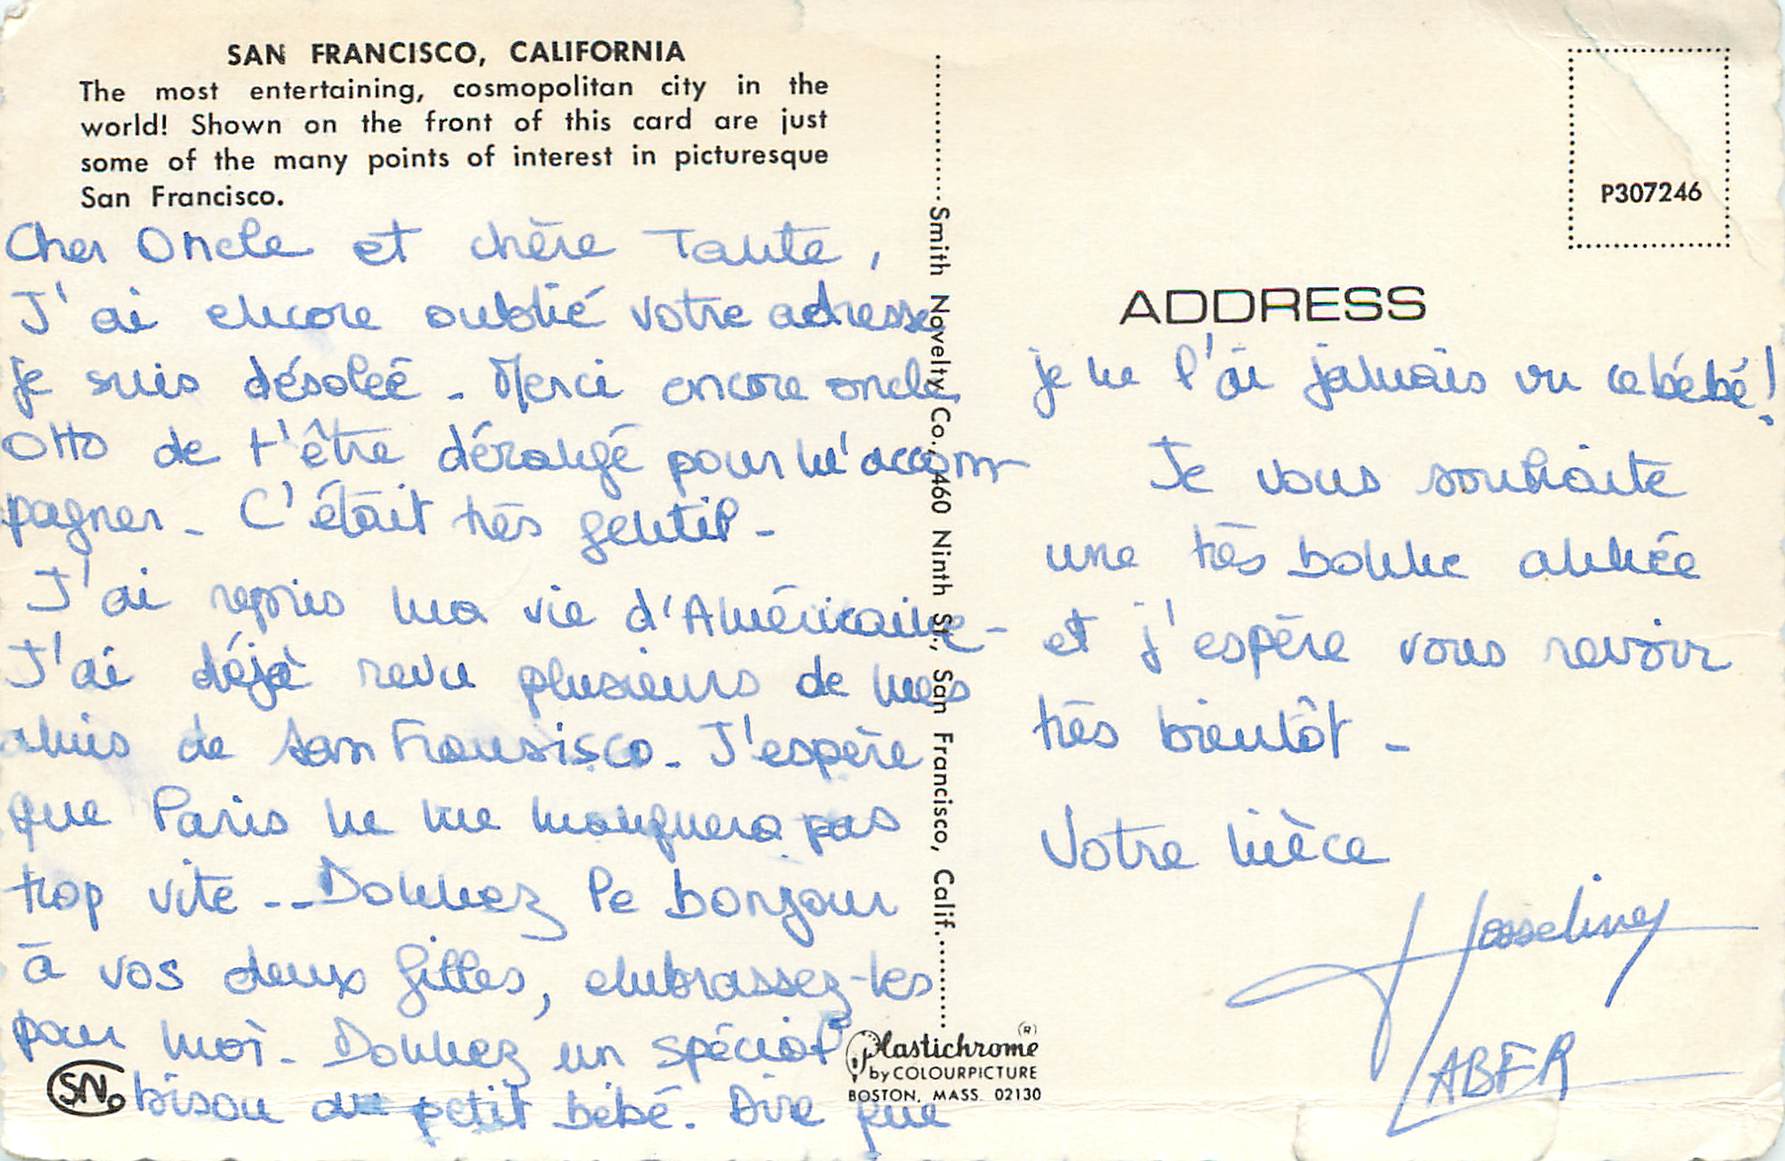 SAN FRANCISCO, CALIFORNIA
The most entertaining, cosmopolitan city in the
world! Shown on the front of this card are just
some of the many points of interest in picturesque
San Francisco.
Cher Oncle et chère Tante,
J'ai encore oublié votre adresse
je suis désolée - Merci encore oncle
Otto de t'être dérangé pour m'accom-
pagner - C'était très gentil -
J'ai repris ma vie d'Américaine -
J'ai déjà revu plusieurs de mes
amis de San Fransisco - J'espère
que Paris ne me manquera pas
trop vite -- Donnez le bonjour
à vos deux filles, embrassez-les
pour moi - Donnez un spécial
bisou au petit bébé. Dire que
SN.
Smith Novelty Co., 460 Ninth St., San Francisco, Calif.
Plastichrome ®
by COLOURPICTURE
BOSTON, MASS. 02130
P307246
ADDRESS
je ne l'ai jamais vu ce bébé!
Je vous souhaite
une très bonne année
et j'espère vous revoir
très bientôt -
Votre nièce
LABER